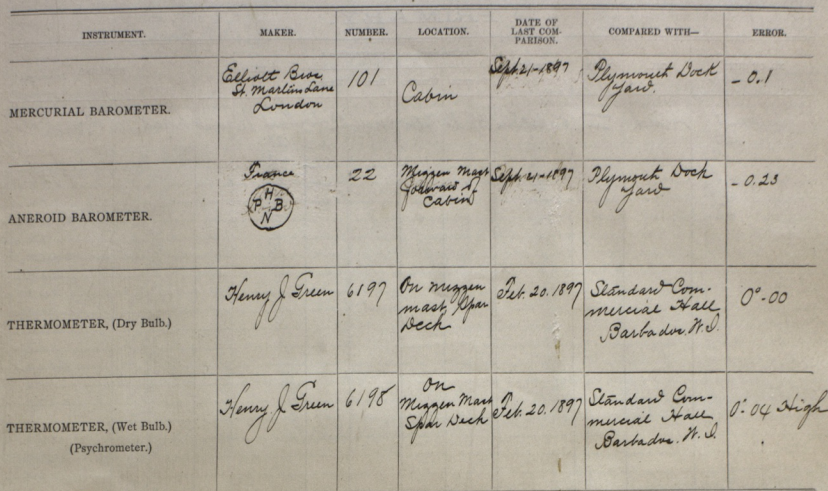 INSTRUMENT. MAKER. NUMBER. LOCATION. DATE OF LAST COMPARISON. COMPARED WITH— ERROR.
MERCURIAL BAROMETER.
Elliott Bros.
St. Martins Lane
London
101
Cabin
Sept. 21-1897
Plymouth Dock
Yard.
- 0.1
ANEROID BAROMETER.
France
H
P B
N
22
Mizzen Mast
forward of
Cabin
Sept. 21-1897
Plymouth Dock
Yard
- 0.23
THERMOMETER, (Dry Bulb.)
Henry J Green
6197
On mizzen
mast, Spar
Deck
Feb. 20. 1897
Standard Com-
mercial Hall
Barbados W. I.
0°-00
THERMOMETER, (Wet Bulb.)
(Psychrometer.)
Henry J Green
6198
On
Mizzen Mast
Spar Deck
Feb. 20. 1897
Standard Com-
mercial Hall
Barbados. W. I.
0°.04 High